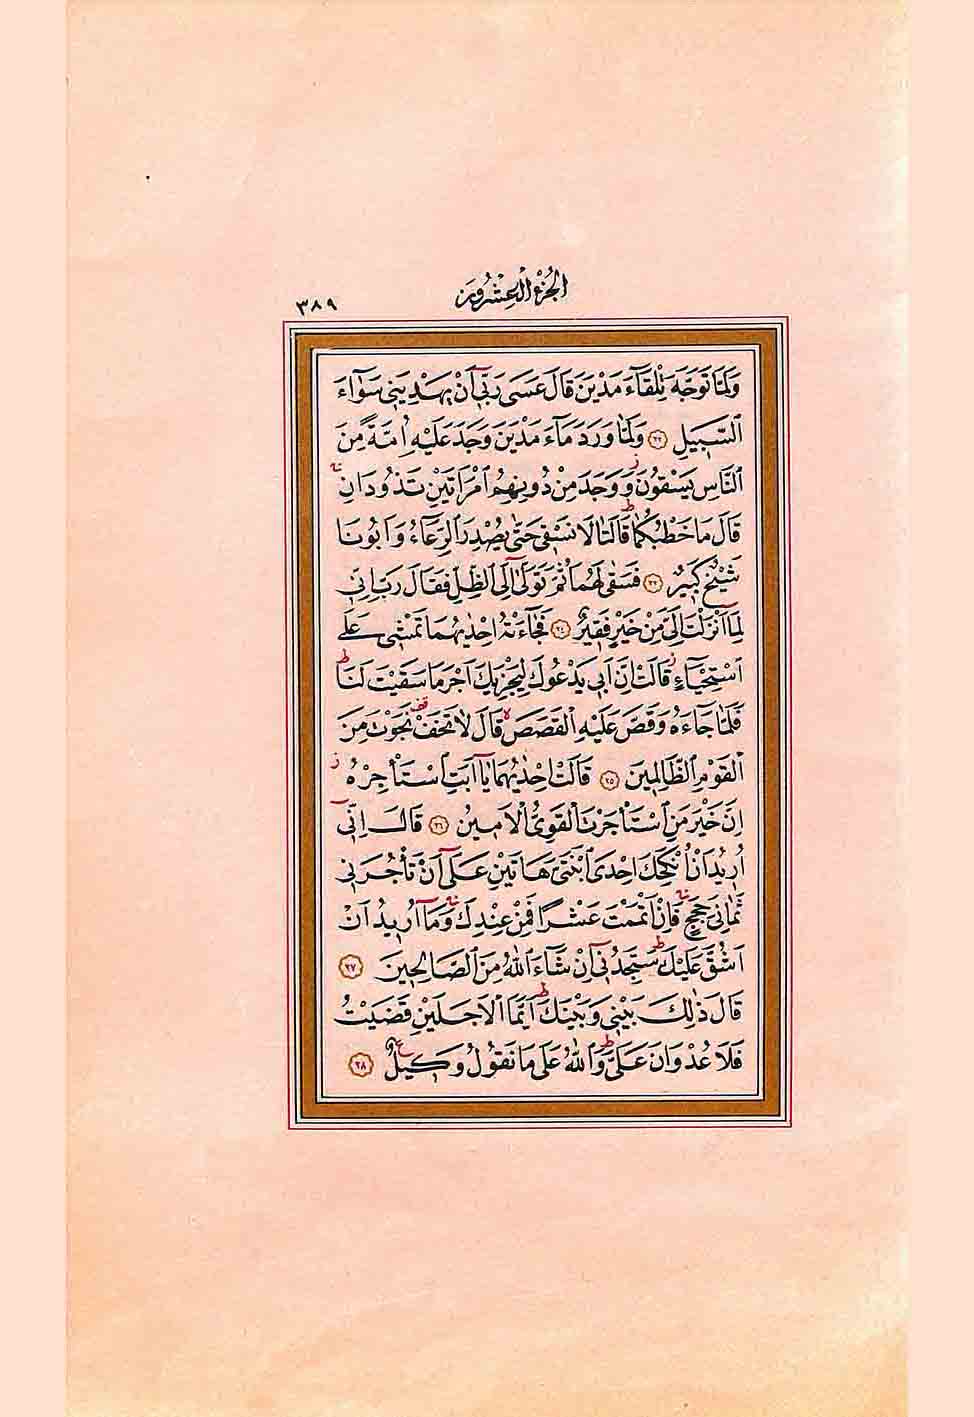 الجزء العشرون
٣٨٩
وَلَمَّا تَوَجَّهَ تِلْقَاءَ مَدْيَنَ قَالَ عَسَى رَبّ۪ٓي اَنْ يَهْدِيَن۪ي سَوَٓاءَ
السَّب۪يلِ ﴿٢٢﴾ وَلَمَّا وَرَدَ مَٓاءَ مَدْيَنَ وَجَدَ عَلَيْهِ اُمَّةً مِنَ
النَّاسِ يَسْقُونَۘ وَوَجَدَ مِنْ دُونِهِمُ امْرَاَتَيْنِ تَذُودَانِۚ
قَالَ مَا خَطْبُكُمَاۜ قَالَتَا لَا نَسْق۪ي حَتّٰى يُصْدِرَ الرِّعَٓاءُ وَاَبُونَا
شَيْخٌ كَب۪يرٌ ﴿٢٣﴾ فَسَقٰى لَهُمَا ثُمَّ تَوَلّٰٓى اِلَى الظِّلِّ فَقَالَ رَبِّ اِنّ۪ي
لِمَٓا اَنْزَلْتَ اِلَيَّ مِنْ خَيْرٍ فَق۪يرٌ ﴿٢٤﴾ فَجَٓاءَتْهُ اِحْدٰيهُمَا تَمْش۪ي عَلَى
اسْتِحْيَٓاءٍۘ قَالَتْ اِنَّ اَب۪ي يَدْعُوكَ لِيَجْزِيَكَ اَجْرَ مَا سَقَيْتَ لَنَاۜ
فَلَمَّا جَٓاءَهُ وَقَصَّ عَلَيْهِ الْقَصَصَۙ قَالَ لَا تَخَفْ۠ نَجَوْتَ مِنَ
الْقَوْمِ الظَّالِم۪ينَ ﴿٢٥﴾ قَالَتْ اِحْدٰيهُمَا يَٓا اَبَتِ اسْتَأْجِرْهُۘ
اِنَّ خَيْرَ مَنِ اسْتَأْجَرْتَ الْقَوِيُّ الْاَم۪ينُ ﴿٢٦﴾ قَالَ اِنّ۪ٓي
اُر۪يدُ اَنْ اُنْكِحَكَ اِحْدَى ابْنَتَيَّ هَاتَيْنِ عَلٰٓى اَنْ تَأْجُرَن۪ي
ثَمَانِيَ حِجَجٍۚ فَاِنْ اَتْمَمْتَ عَشْرًا فَمِنْ عِنْدِكَۚ وَمَٓا اُر۪يدُ اَنْ
اَشُقَّ عَلَيْكَۜ سَتَجِدُن۪ٓي اِنْ شَٓاءَ اللّٰهُ مِنَ الصَّالِح۪ينَ ﴿٢٧﴾
قَالَ ذٰلِكَ بَيْن۪ي وَبَيْنَكَۜ اَيَّمَا الْاَجَلَيْنِ قَضَيْتُ
فَلَا عُدْوَانَ عَلَيَّۜ وَاللّٰهُ عَلٰى مَا نَقُولُ وَك۪يلٌ۟ ﴿٢٨﴾